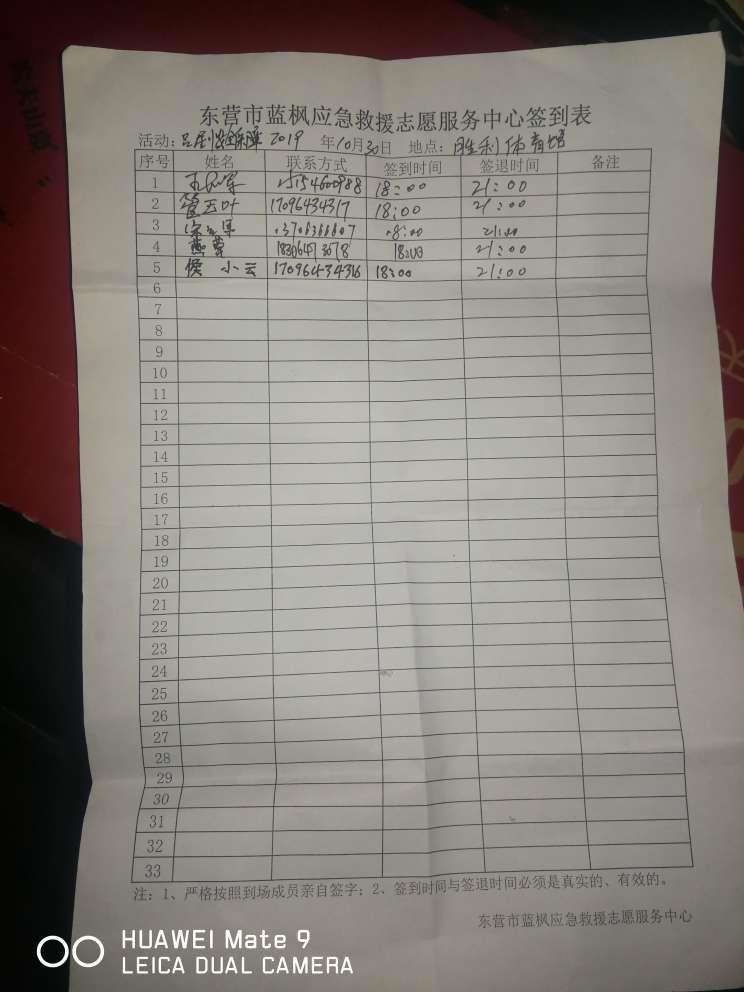 东营市蓝枫应急救援志愿服务中心签到表
活动: 吕剧 保障 2019 年10月30日 地点: 胜利体育馆
序号 姓名 联系方式 签到时间 签退时间 备注
1 18:00 21:00
2 管玉叶 17096434317 18:00 21:00
3 18:00 21:00
4 18:00 21:00
5 侯小云 17096434316 18:00 21:00
6
7
8
9
10
11
12
13
14
15
16
17
18
19
20
21
22
23
24
25
26
27
28
29
30
31
32
33
注: 1、严格按照到场成员亲自签字; 2、签到时间与签退时间必须是真实的、有效的。
东营市蓝枫应急救援志愿服务中心
HUAWEI Mate 9
LEICA DUAL CAMERA